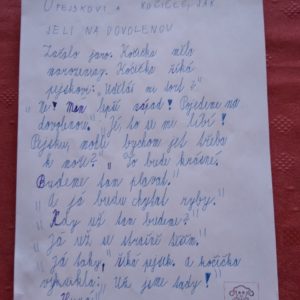 O PEJSKOVI A KOČIČCE, JAK
JELI NA DOVOLENOU
Začalo jaro. Kočička měla
narozeniny. Kočička říká
pejskovi: "Uděláš mi dort?"
"Ne! Mám lepší nápad! Pojedeme na
dovolenou." "Jé, to se mi líbí!
Pejsku, mohli bychom jet třeba
k moři?" "To bude krásné.
Budeme tam plavat."
"A já budu chytat ryby."
"Kdy už tam budeme?"
"Já už se strašně těším."
"Já taky," říká pejsek a kočička
vykřikla: "Už jsme tady!"